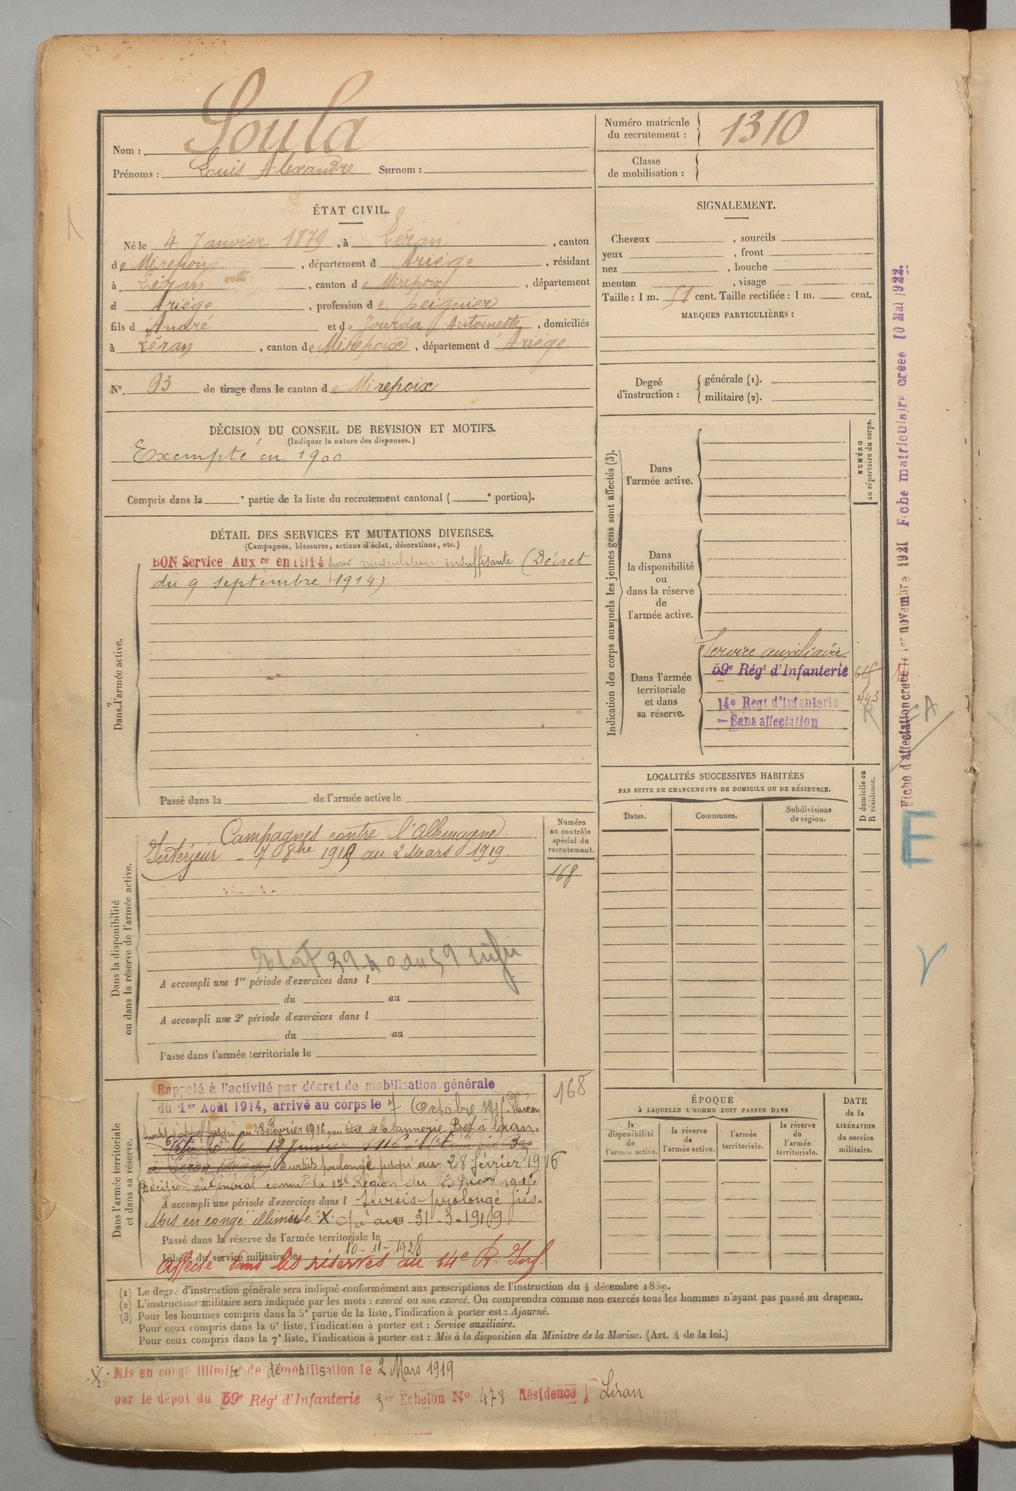 Nom : Soula
Prénoms : Louis Alexandre Surnom :
Numéro matricule du recrutement : 1310
Classe de mobilisation :
ÉTAT CIVIL.
Né le 4 Janvier 1879, à Léran, canton
de Mirepoix, département d Ariège, résidant
à Léran, canton de Mirepoix, département
d Ariège, profession de peignier
fils d André et de Jourda Antoinette, domiciliés
à Léran, canton de Mirepoix, département d Ariège
N° 93 de tirage dans le canton de Mirepoix
DÉCISION DU CONSEIL DE REVISION ET MOTIFS.
(Indiquer la nature des dispenses.)
Exempté en 1900
Compris dans la e partie de la liste du recrutement cantonal ( e portion).
DÉTAIL DES SERVICES ET MUTATIONS DIVERSES.
(Campagnes, blessures, actions d'éclat, décorations, etc.)
BON Service Aux re en 1914 pour musculature insuffisante (Décret
du 9 septembre 1914)
Dans l'armée active.
Passé dans la de l'armée active le
SIGNALEMENT.
Cheveux , sourcils
yeux , front
nez , bouche
menton , visage
Taille : 1 m. 51 cent. Taille rectifiée : 1 m. cent.
MARQUES PARTICULIÈRES :
Degré d'instruction : générale (1). militaire (2).
Indication des corps auxquels les jeunes gens sont affectés (3).
Dans l'armée active.
NUMÉRO au répertoire du corps.
Dans la disponibilité ou dans la réserve de l'armée active.
Dans l'armée territoriale et dans sa réserve.
Service auxiliaire
59e Régt d'Infanterie
14e Régt d'Infanterie
Sans affectation
443
LOCALITÉS SUCCESSIVES HABITÉES
PAR SUITE DE CHANGEMENTS DE DOMICILE OU DE RÉSIDENCE.
Dates. Communes. Subdivisions de région.
D domicile ou R résidence.
Dans la disponibilité ou dans la réserve de l'armée active.
Numéro au contrôle spécial du recrutement.
168
Campagnes contre l'Allemagne
Intérieur - 7 8bre 1915 au 2 Mars 1919.
A accompli une 1re période d'exercices dans l
du au
A accompli une 2e période d'exercices dans l
du au
Passé dans l'armée territoriale le
Dans l'armée territoriale et dans sa réserve.
168
Rappelé à l'activité par décret de mobilisation générale
du 1er Août 1914, arrivé au corps le 7 Octobre 1915.
Sursis prolongé jusqu'au 28 février 1916
A accompli une période d'exercices dans l sursis prolongé jus-
Mis en congé illimité X qu'au 31-3-1919
Passé dans la réserve de l'armée territoriale le
Libéré du service militaire le 10-11-1928
Affecté dans les réserves au 14e R. Inf.
ÉPOQUE
À LAQUELLE L'HOMME DOIT PASSER DANS
la disponibilité de l'armée active. la réserve de l'armée active. l'armée territoriale. la réserve de l'armée territoriale.
DATE de la LIBÉRATION du service militaire.
(1) Le degré d'instruction générale sera indiqué conformément aux prescriptions de l'instruction du 4 décembre 1889.
(2) L'instruction militaire sera indiquée par les mots : exercé ou non exercé. On comprendra comme non exercés tous les hommes n'ayant pas passé au drapeau.
(3) Pour les hommes compris dans la 5e partie de la liste, l'indication à porter est : Ajourné.
Pour ceux compris dans la 6e liste, l'indication à porter est : Service auxiliaire.
Pour ceux compris dans la 7e liste, l'indication à porter est : Mis à la disposition du Ministre de la Marine. (Art. 4 de la loi.)
X. Mis en congé illimité de démobilisation le 2 Mars 1919
par le dépôt du 59e Régt d'Infanterie 3er Echelon N° 478 Résidence Léran
Fiche d'affectation créée le 1er novembre 1921 Fiche matriculaire créée 10 Mai 1922.